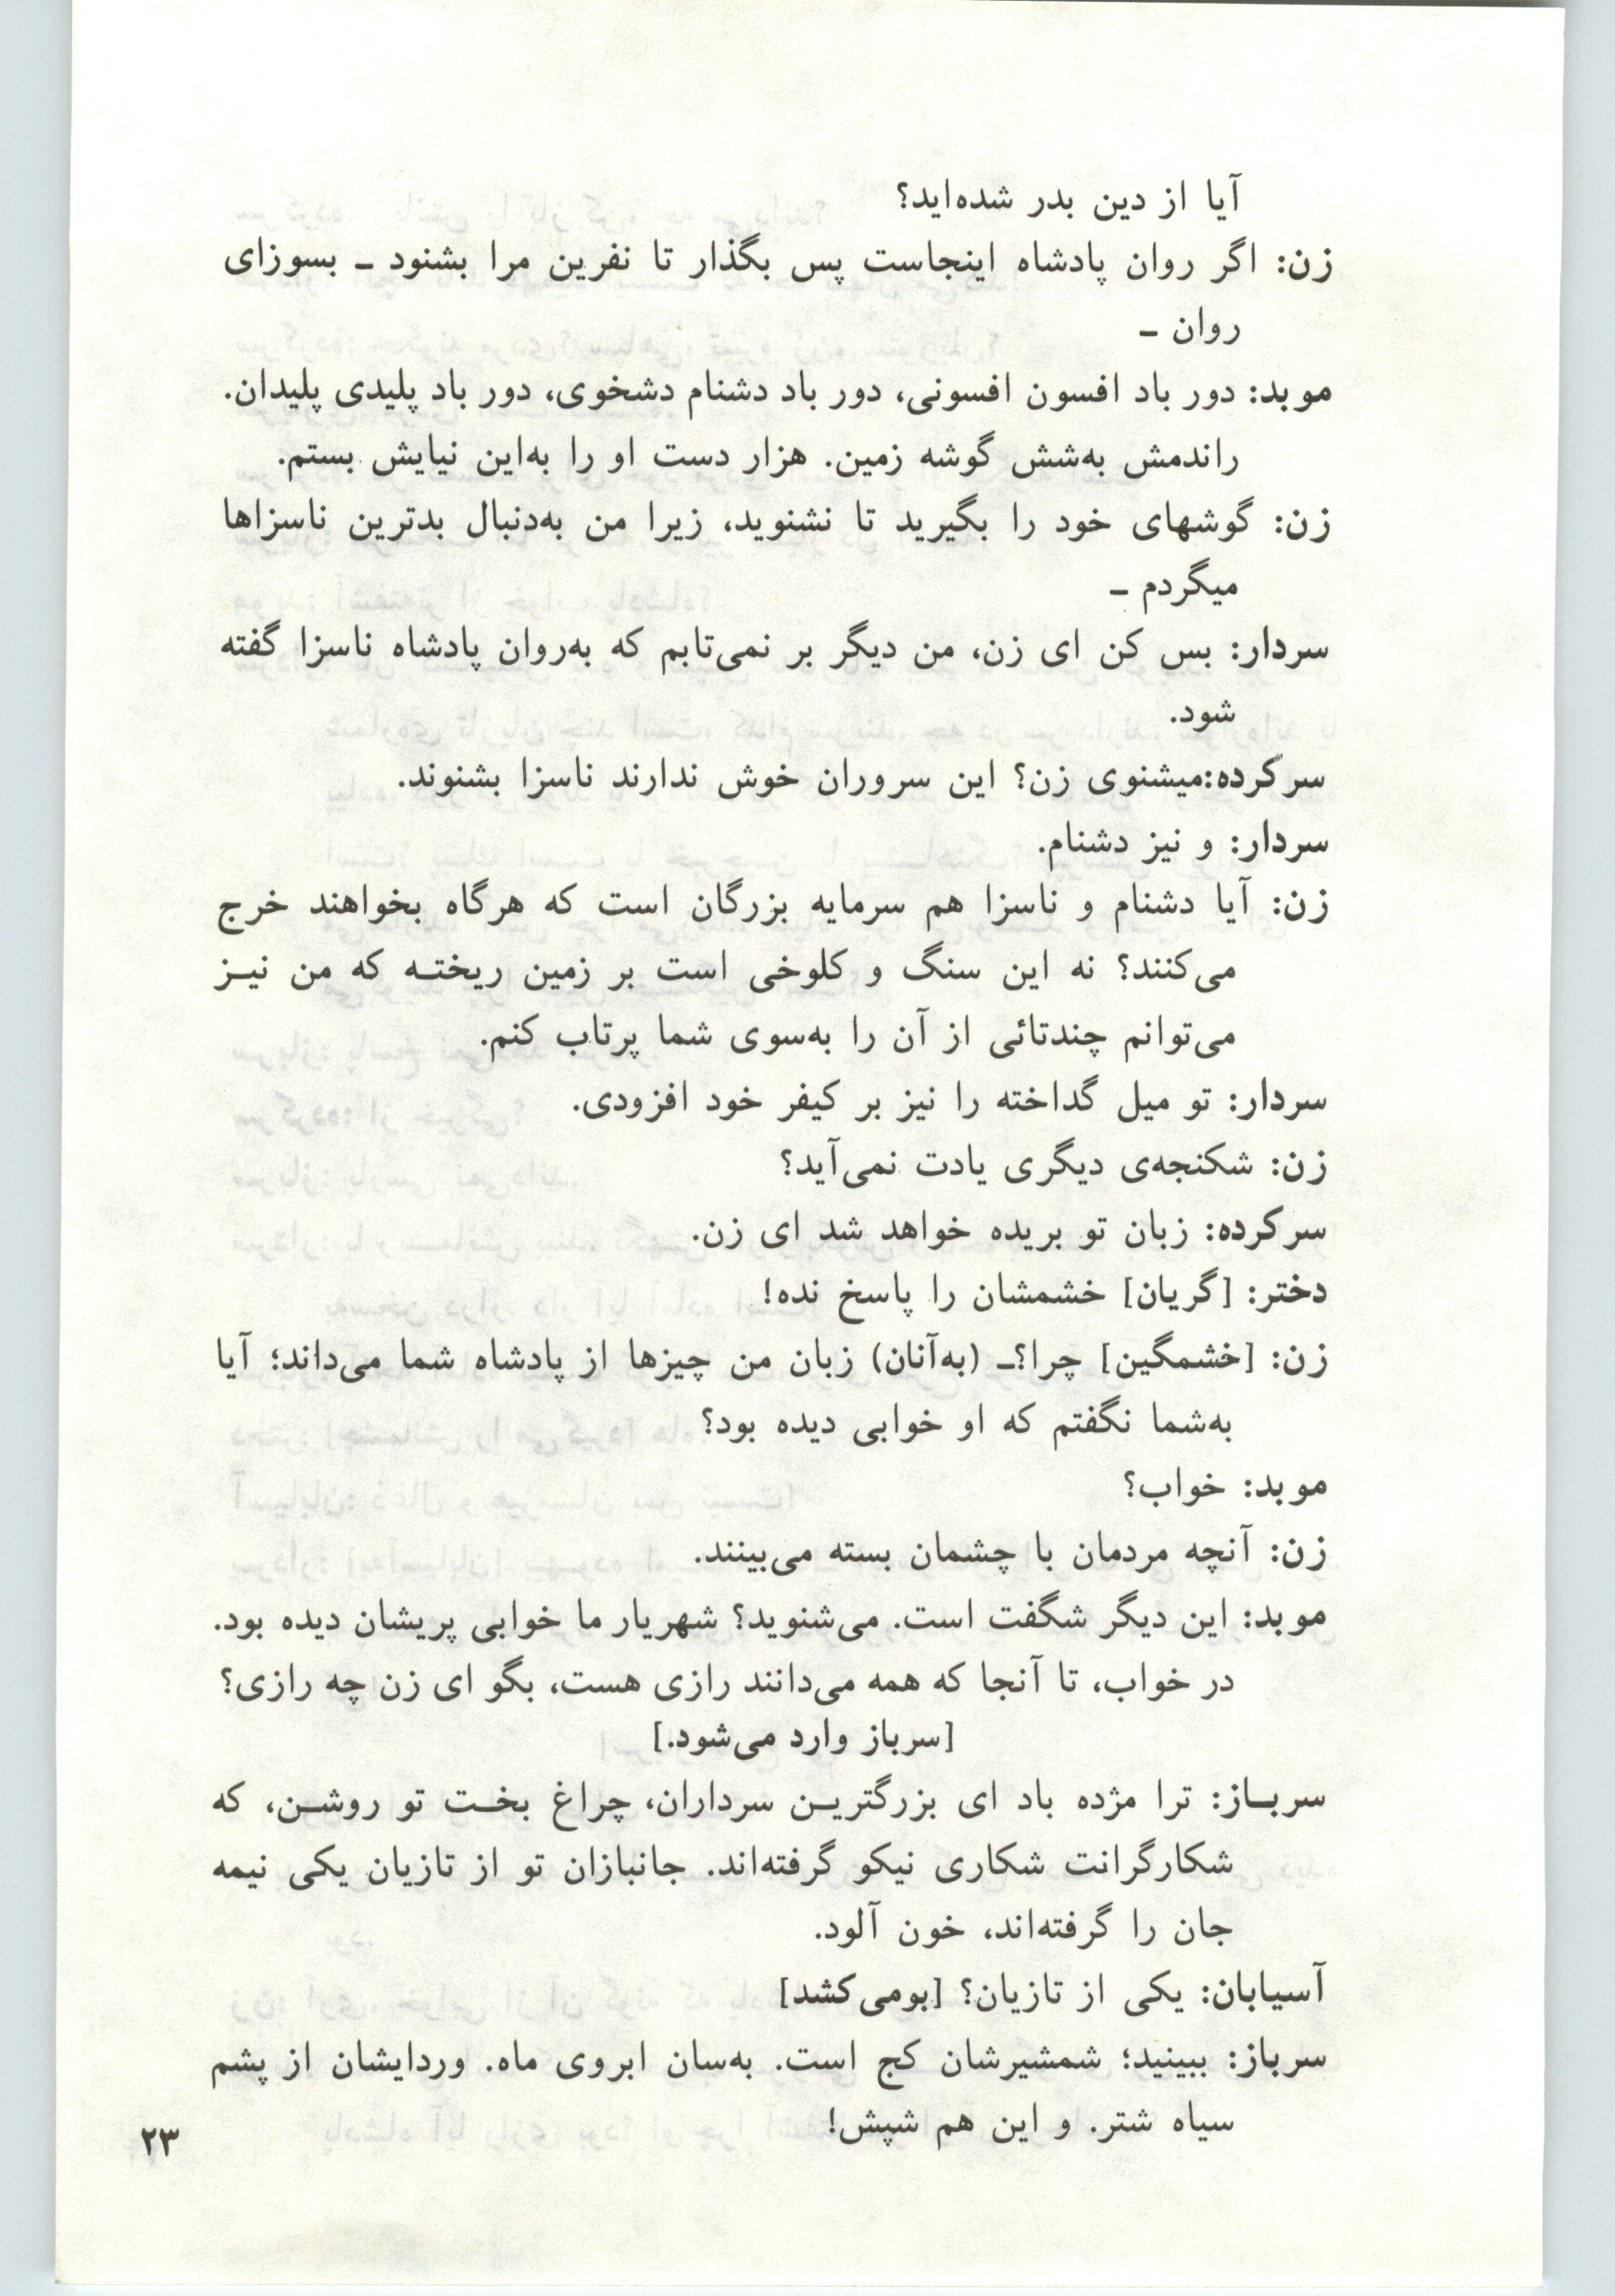 آیا از دین بدر شده‌اید؟
زن: اگر روان پادشاه اینجاست پس بگذار تا نفرین مرا بشنود ـ بسوزای
روان ـ
موبد: دور باد افسون افسونی، دور باد دشنام دشخوی، دور باد پلیدی پلیدان.
راندمش به‌شش گوشه زمین. هزار دست او را به‌این نیایش بستم.
زن: گوشهای خود را بگیرید تا نشنوید، زیرا من به‌دنبال بدترین ناسزاها
میگردم ـ
سردار: بس کن ای زن، من دیگر بر نمی‌تابم که به‌روان پادشاه ناسزا گفته
شود.
سرکرده:میشنوی زن؟ این سروران خوش ندارند ناسزا بشنوند.
سردار: و نیز دشنام.
زن: آیا دشنام و ناسزا هم سرمایه بزرگان است که هرگاه بخواهند خرج
می‌کنند؟ نه این سنگ و کلوخی است بر زمین ریختـه که من نیـز
می‌توانم چندتائی از آن را به‌سوی شما پرتاب کنم.
سردار: تو میل گداخته را نیز بر کیفر خود افزودی.
زن: شکنجه‌ی دیگری یادت نمی‌آید؟
سرکرده: زبان تو بریده خواهد شد ای زن.
دختر: [گریان] خشمشان را پاسخ نده!
زن: [خشمگین] چرا؟ـ (به‌آنان) زبان من چیزها از پادشاه شما می‌داند؛ آیا
به‌شما نگفتم که او خوابی دیده بود؟
موبد: خواب؟
زن: آنچه مردمان با چشمان بسته می‌بینند.
موبد: این دیگر شگفت است. می‌شنوید؟ شهریار ما خوابی پریشان دیده بود.
در خواب، تا آنجا که همه می‌دانند رازی هست، بگو ای زن چه رازی؟
[سرباز وارد می‌شود.]
سربـاز: ترا مژده باد ای بزرگتریـن سرداران، چراغ بخـت تو روشـن، که
شکارگرانت شکاری نیکو گرفته‌اند. جانبازان تو از تازیان یکی نیمه
جان را گرفته‌اند، خون آلود.
آسیابان: یکی از تازیان؟ [بومی‌کشد]
سرباز: ببینید؛ شمشیرشان کج است. به‌سان ابروی ماه. وردایشان از پشم
سیاه شتر. و این هم شپش!
۲۳